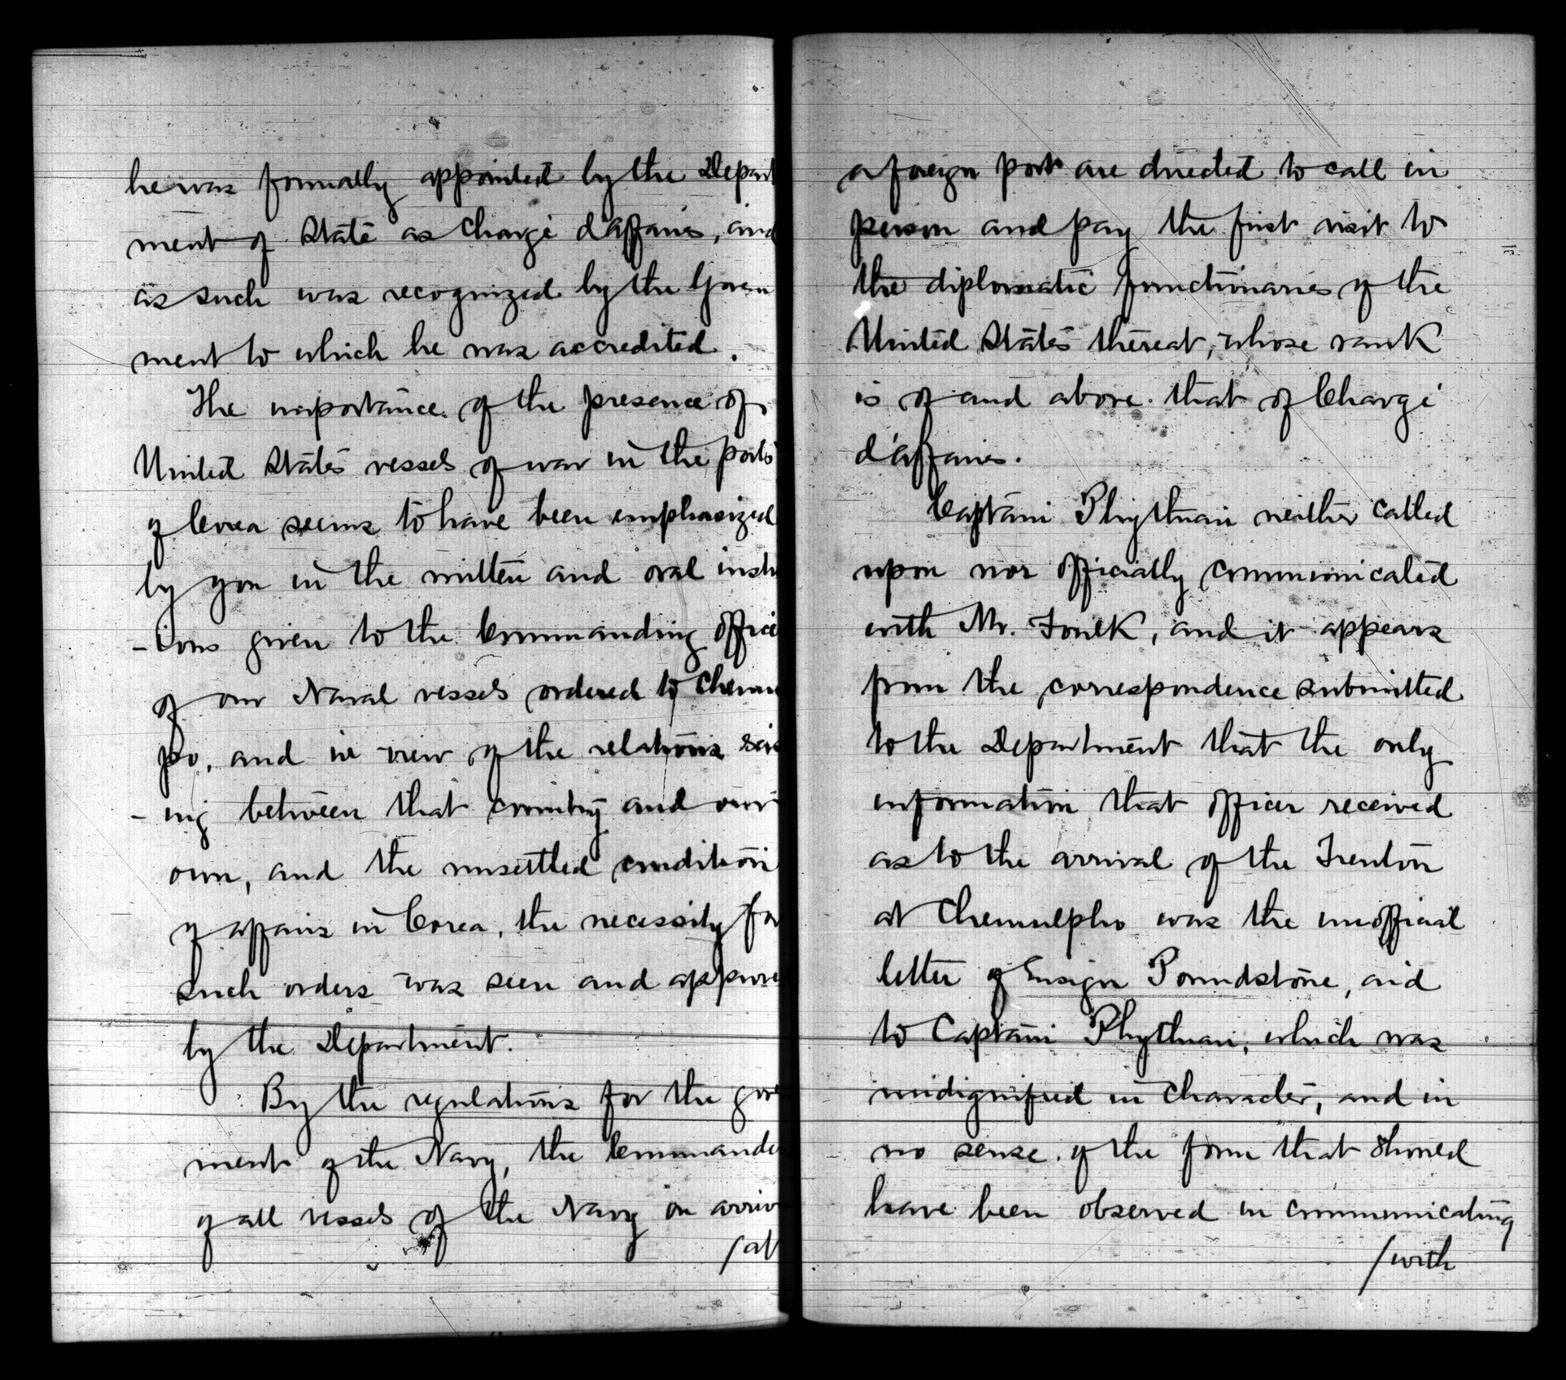 he was formally appointed by the Depart
ment of State as Chargé d'affaires, and
as such was recognized by the Govern
ment to which he was accredited.
The importance of the presence of
United States vessels of war in the ports
of Corea seems to have been emphasized
by you in the written and oral instr
-ions given to the Commanding office
of our Naval vessels ordered to Chemu
po, and in view of the relations
- ing between that country and our
own, and the unsettled condition
of affairs in Corea, the necessity for
such orders was seen and approve
by the Department.
By the regulations for the gove
ment of the Navy, the Commande
of all vessels of the Navy on arriv
/at
a foreign port are directed to call in
person and pay the first visit to
the diplomatic functionaries of the
United States thereat, whose rank
is of and above that of Chargé
d'affaires.
Captain Phythian neither called
upon nor officially communicated
with Mr. Foulk, and it appears
from the correspondence submitted
to the Department that the only
information that officer received
as to the arrival of the Trenton
at Chemulpho was the unofficial
letter of Ensign Poundstone, aid
to Captain Phythian, which was
undignified in character, and in
no sense of the form that should
have been observed in communicating
/with